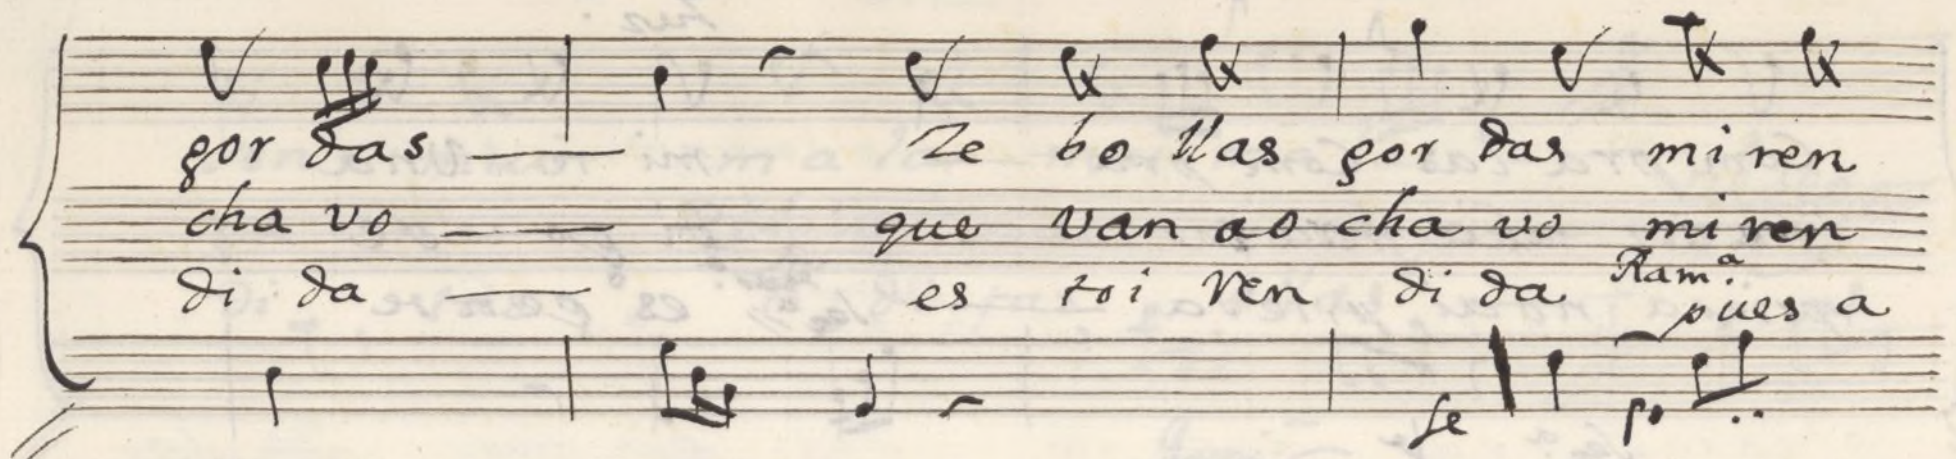 gor das Ze bo llas gor das mi ren
cha vo que van ao cha vo mi ren
di da es toi ren di da Ram.ª pues a
fe po